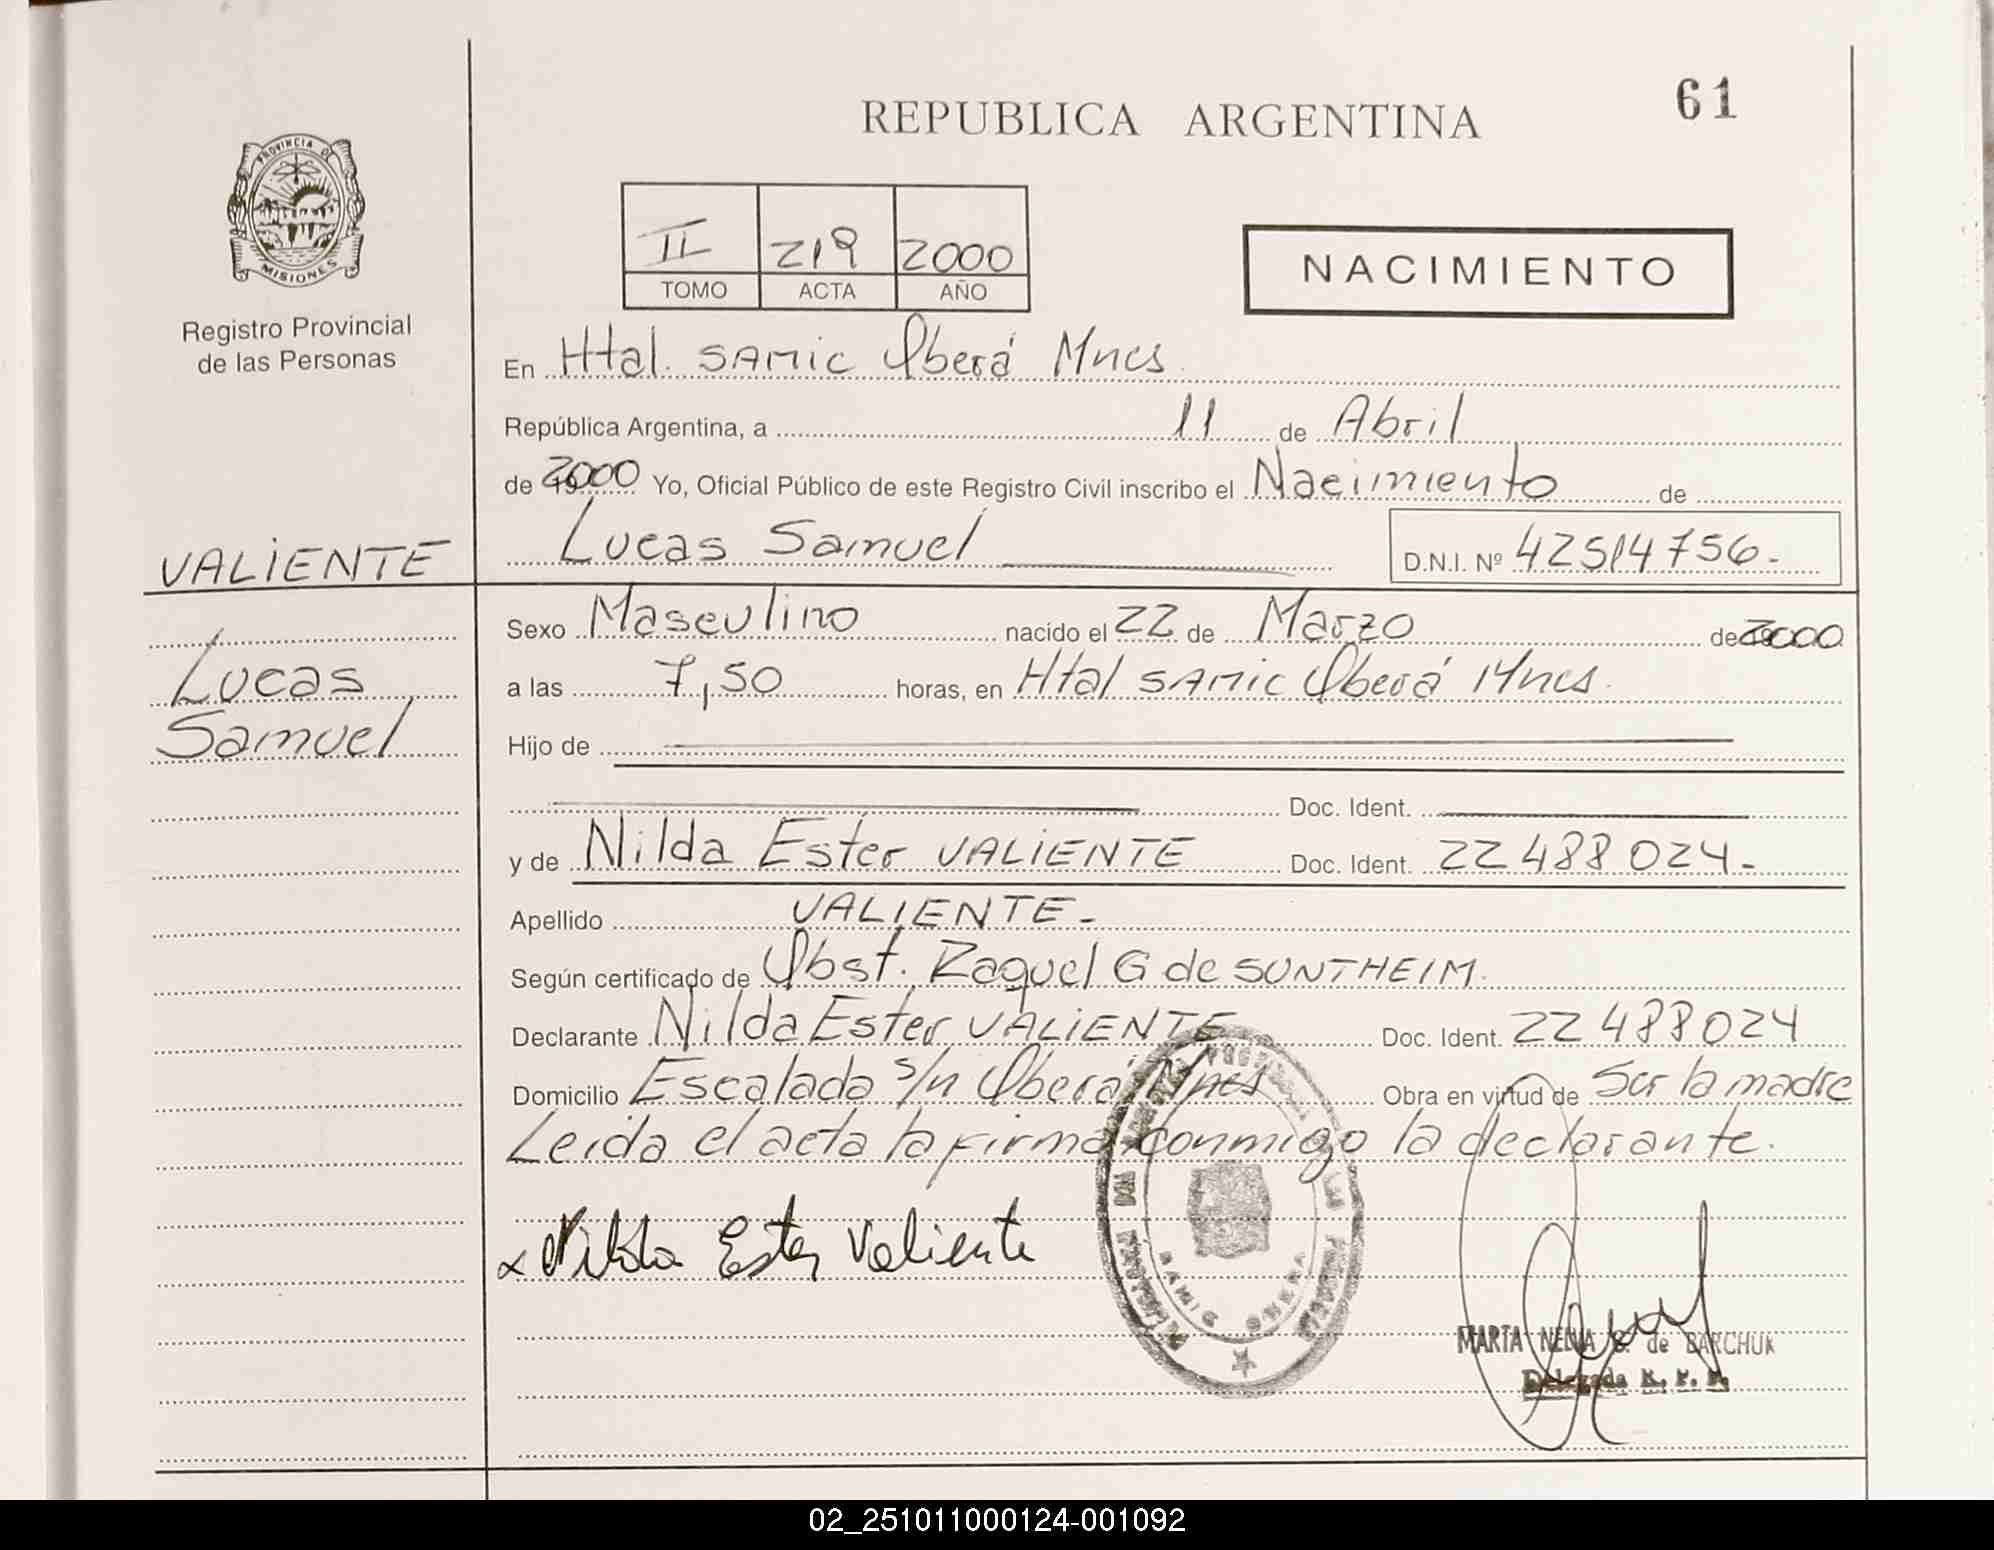 61
REPUBLICA ARGENTINA
PROVINCIA DE
MISIONES
Registro Provincial
de las Personas
II 219 2000
TOMO ACTA AÑO
NACIMIENTO
En Htal. SAMIC Oberá Mnes
República Argentina, a 11 de Abril
de 2000 Yo, Oficial Público de este Registro Civil inscribo el Nacimiento de
Lucas Samuel D.N.I. Nº 42514756.-
VALIENTE
Lucas
Samuel
Sexo Masculino nacido el 22 de Marzo de 2000
a las 7,50 horas, en Htal SAMIC Oberá Mnes.
Hijo de
Doc. Ident.
y de Nilda Ester VALIENTE Doc. Ident. 22488024.-
Apellido VALIENTE.-
Según certificado de Obst. Raquel G de SUNTHEIM.
Declarante Nilda Ester VALIENTE Doc. Ident. 22488024
Domicilio Escalada s/n Oberá Mnes Obra en virtud de Ser la madre
Leida el acta la firma conmigo la declarante.
Nilda Ester Valiente
SAMIC OBERA
MARTA NELIDA S. de BARCHUK
Delegada R. P. P.
02_251011000124-001092